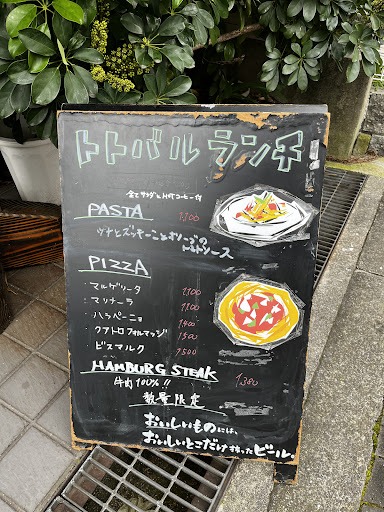 トトバル ランチ
全てサラダとHOTコーヒー付
PASTA 1100
ツナとズッキーニとオリーブの
トマトソース
PIZZA
・マルゲリータ 1100
・マリナーラ 1100
・ハラペーニョ 1400
・クアトロフォルマッジ 1500
・ビスマルク 1500
HAMBURG STEAK 1,380
牛肉100%!!
数量限定
おいしいものには、
おいしいとこだけ搾ったビール。